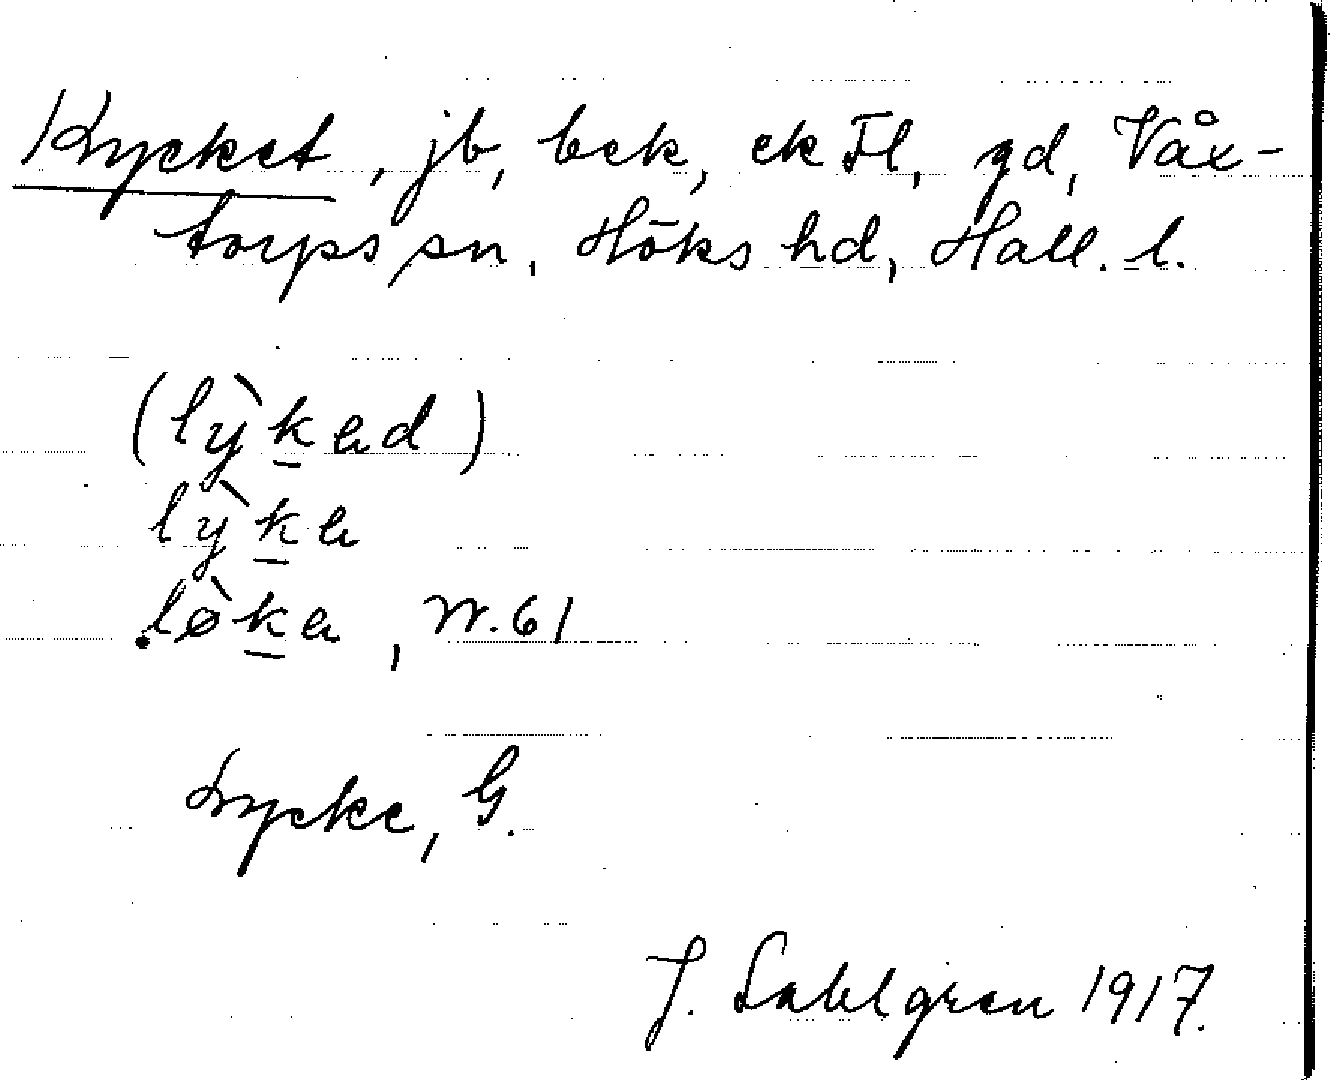 Lycket, jb, bek, ek Fl, gd, Våx-
torps sn, Höks hd, Hall. l.
(lỳk̲əd)
lỳk̲ə
.lø̀k̲ə, W. 61
Lycke, G.
J. Sahlgren 1917.